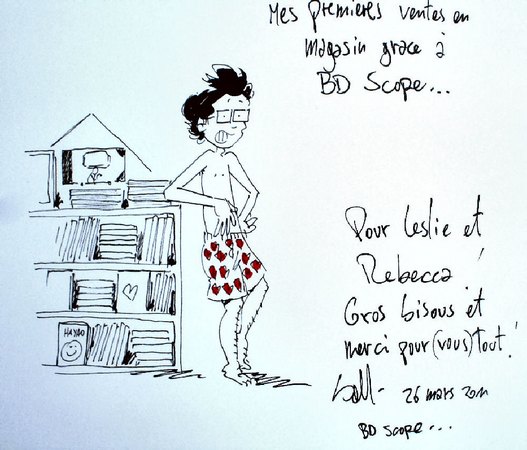 Mes premières ventes en
magasin grace à
BD Scope...
Pour Leslie et
Rebecca!
Gros bisous et
merci pour (vous) tout!
26 mars 2011
BD Scope...
HAYAO